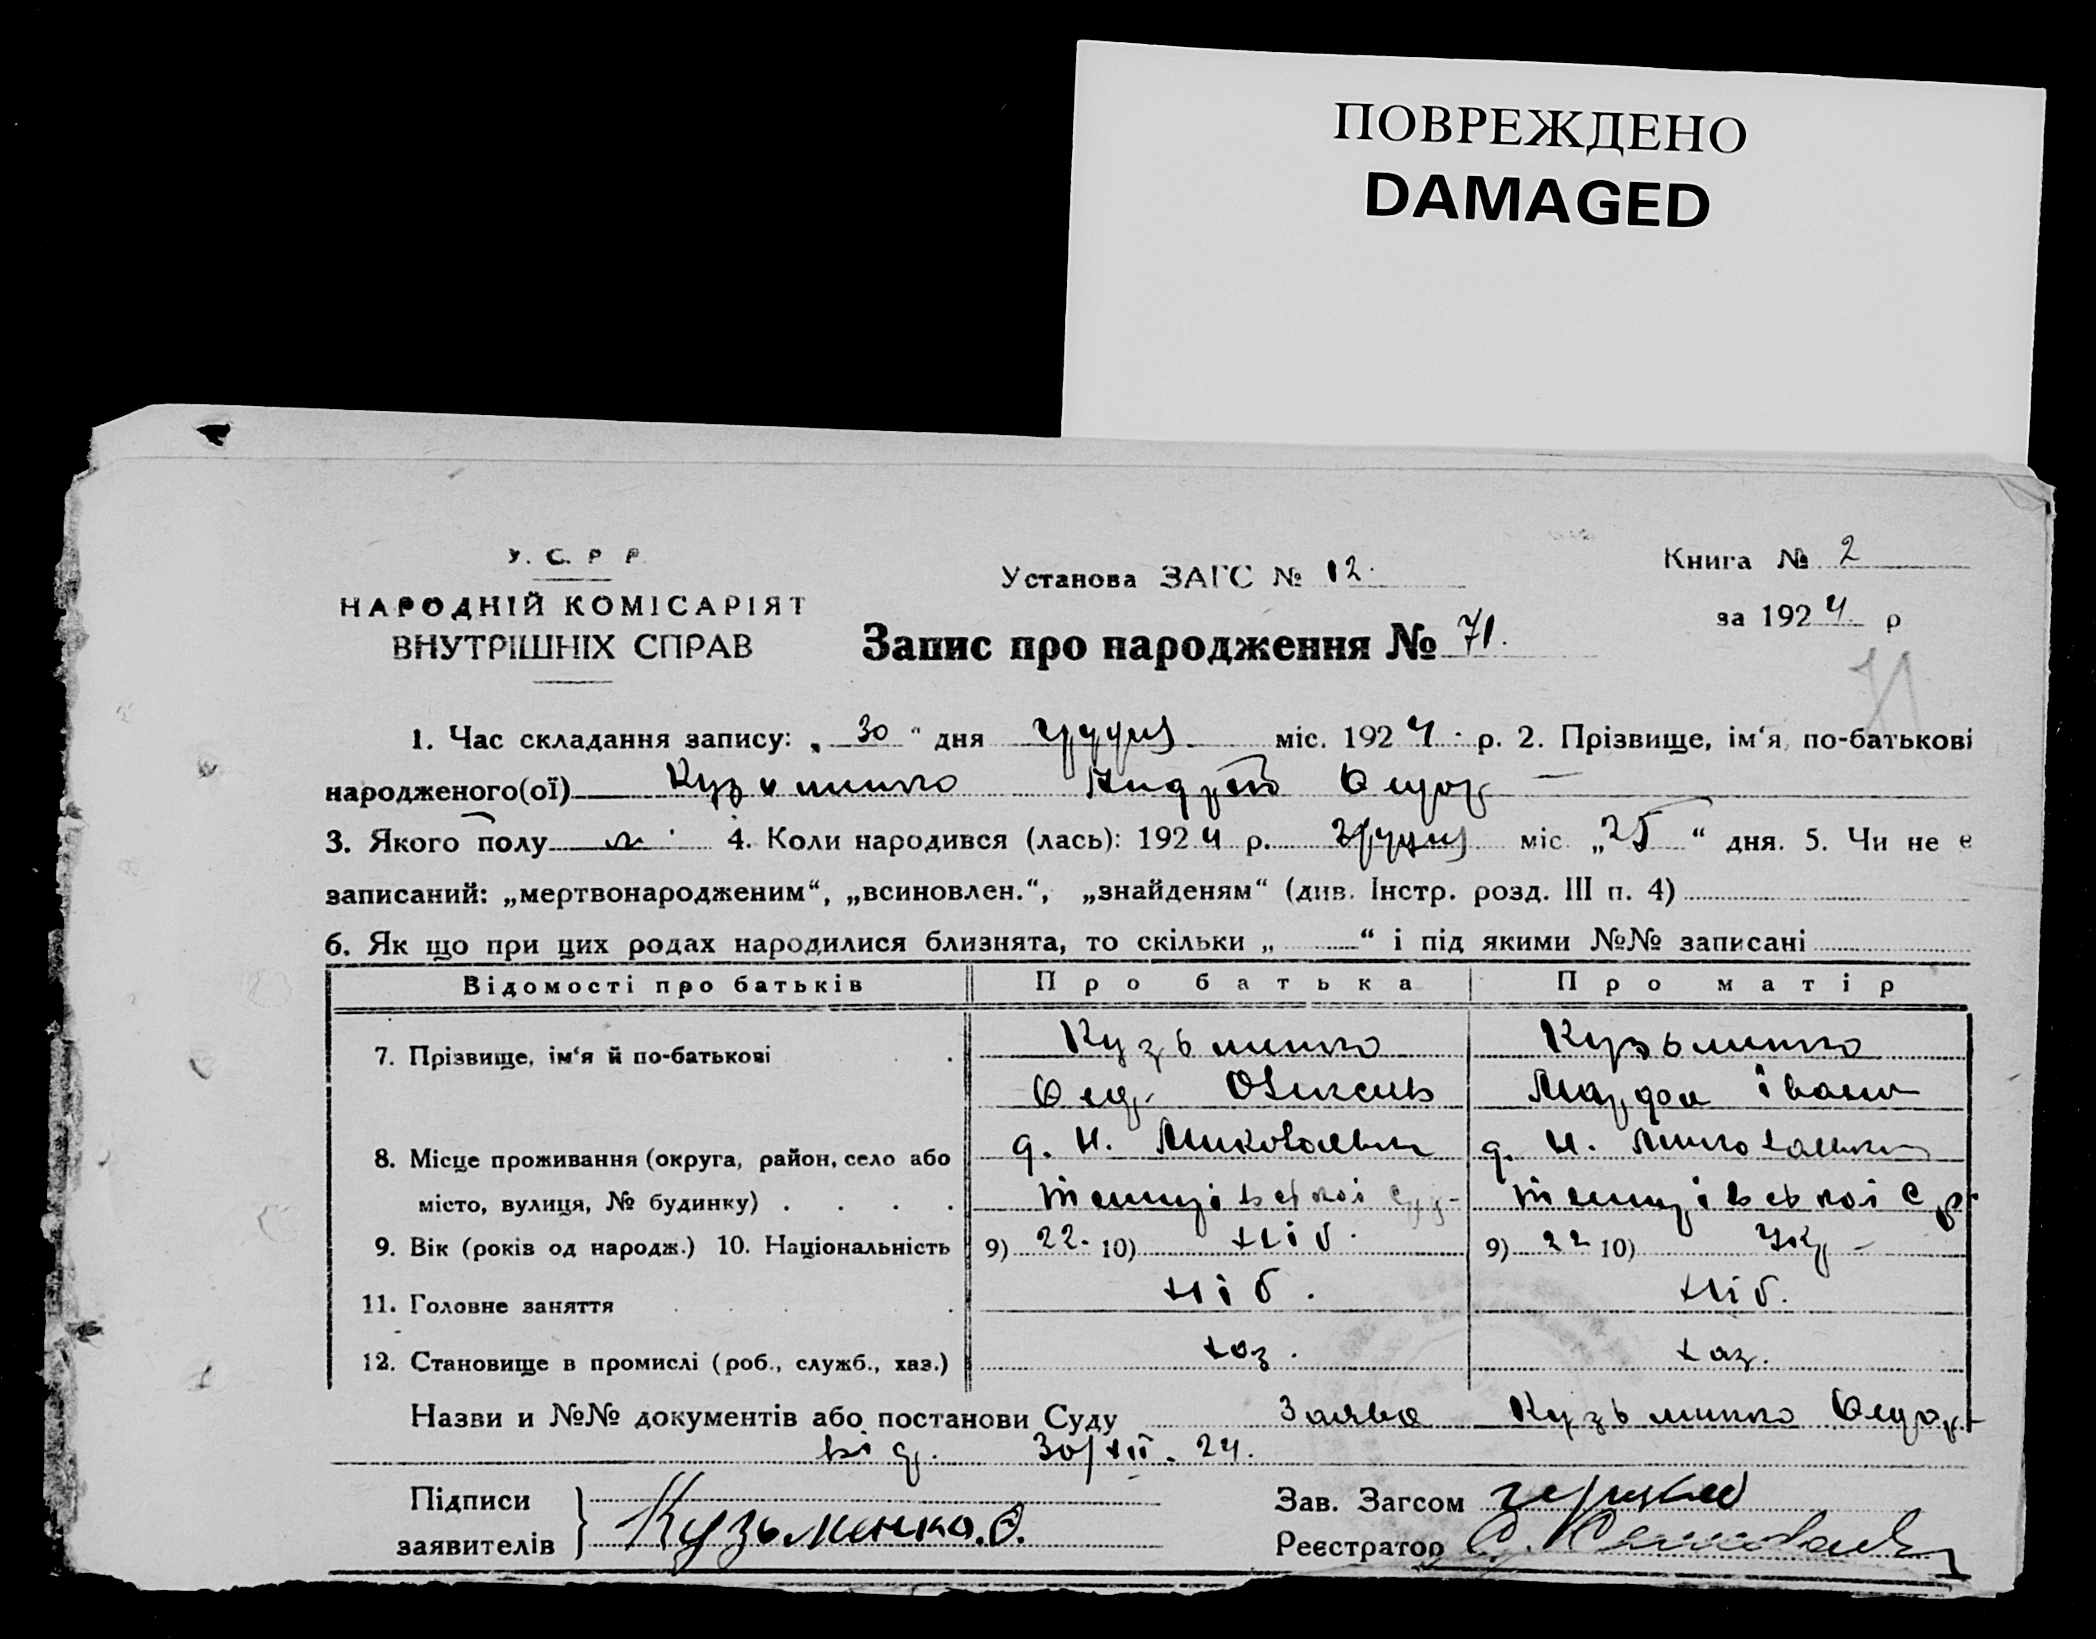 ПОВРЕЖДЕНО
DAMAGED
У. С. Р Р.
НАРОДНІЙ КОМІСАРІЯТ
ВНУТРІШНІХ СПРАВ
Установа ЗАГС № 12.
Книга № 2
за 1924 р
Запис про народження № 71.
71
1. Час складання запису: „ 30 " дня грудня міс. 1924 р. 2. Прізвище, ім'я, по-батькові
народженого(ої) Кузьменко Андрей Федор
3. Якого полу м. 4. Коли народився (лась): 1924 р. грудня міс. „25" дня. 5. Чи не є
записаний: „мертвонародженим", „всиновлен.", „знайденям" (див. Інстр. розд. III п. 4)
6. Як що при цих родах народилися близнята, то скільки „ " і під якими №№ записані
Відомості про батьків Про батька Про матір
7. Прізвище, ім'я й по-батькові Кузьменко Кузьменко
Фед. Олексів Іван
8. Місце проживання (округа, район, село або д. Н. Миколаевка д. Н.
місто, вулиця, № будинку)
9. Вік (років од народж.) 10. Національність 9) 22. 10) 9) 22 10) Укр
11. Головне заняття хліб. хліб.
12. Становище в промислі (роб., служб., хаз.) хаз. хаз.
Назви и №№ документів або постанови Суду Заява Кузьменко Федор
від 30/XII. 24.
Підписи
заявителів Кузьменко. Ф.
Зав. Загсом
Реєстратор